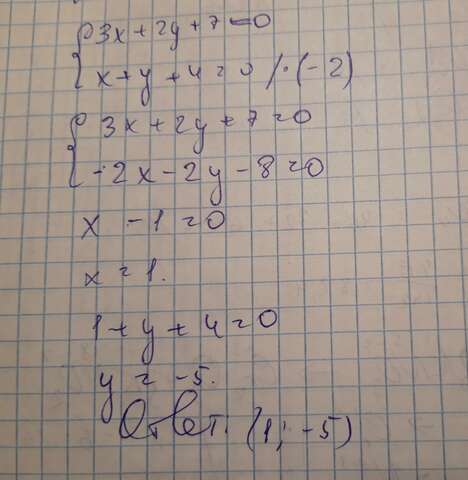 { 3x + 2y + 7 = 0
x + y + 4 = 0 / · (-2)
{ 3x + 2y + 7 = 0
-2x - 2y - 8 = 0
x - 1 = 0
x = 1.
1 + y + 4 = 0
y = -5.
Ответ: (1; -5)